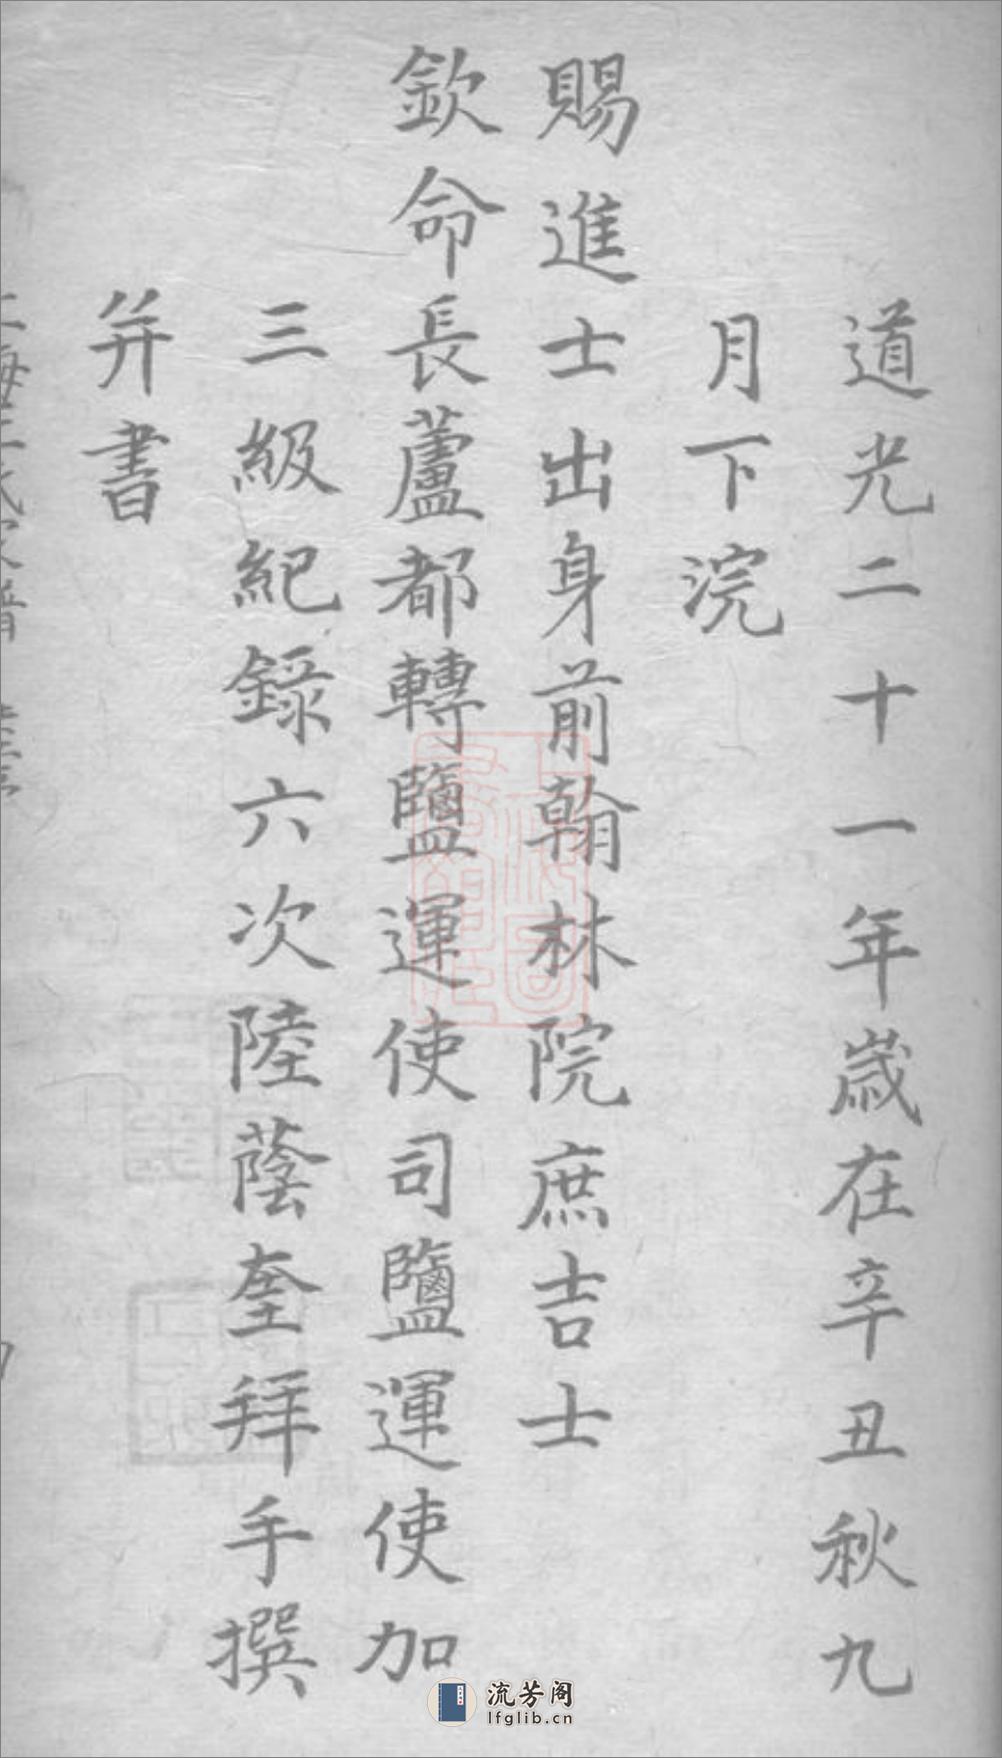 道光二十一年歲在辛丑秋九
月下浣
賜進士出身前翰林院庶吉士
欽命長蘆都轉鹽運使司鹽運使加
三級紀錄六次陸蔭奎拜手撰
并書
流芳阁
lfglib.cn